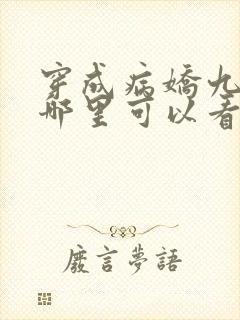 穿成病嬌九
哪里可以看
廢言夢語